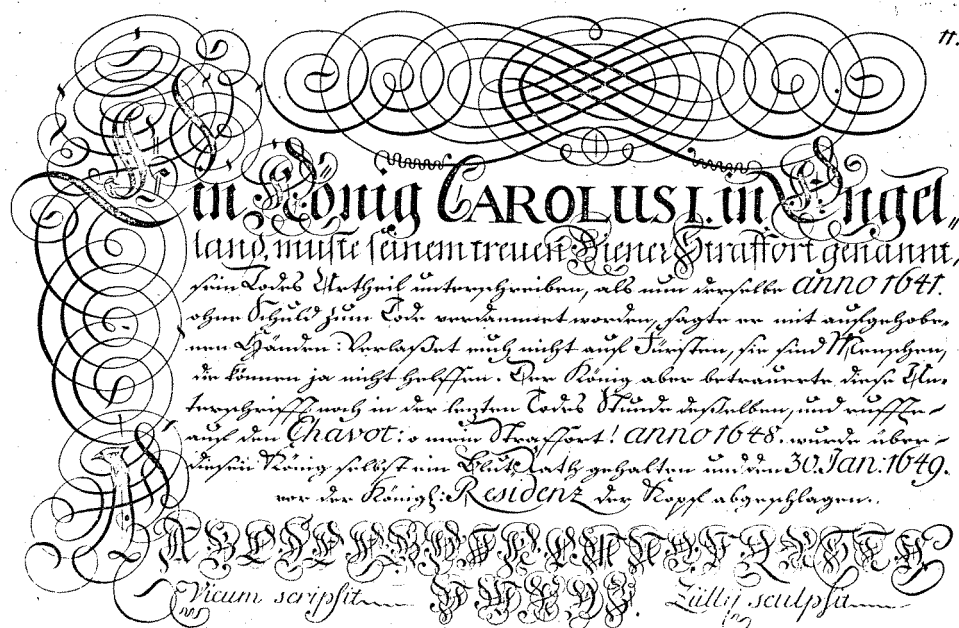 11.
Ein König CAROLUS I. in Engel„
land, muste seinem treuen Diener Straffort genannt,
sein Todes Urtheil unterschreiben, als nun derselbe anno 1641.
ohne Schuld zum Tode verdammet worden, sagte er mit aufgehobe„
nen Händen: Verlaßet euch nicht auf Fürsten, sie sind Menschen,
die können ja nicht helffen. Der König aber betrauerte diese Un„
terschrifft noch in der lezten Todes Stunde deßelben, und ruffte„
auf den Chavot: o mein Straffort! anno 1648. wurde über„
diesen König selbst ein Blut Rath gehalten und den 30. Jan: 1649.
vor der Königl: Residenz der Kopf abgeschlagen.
Vicum scripsit Zully sculpsit